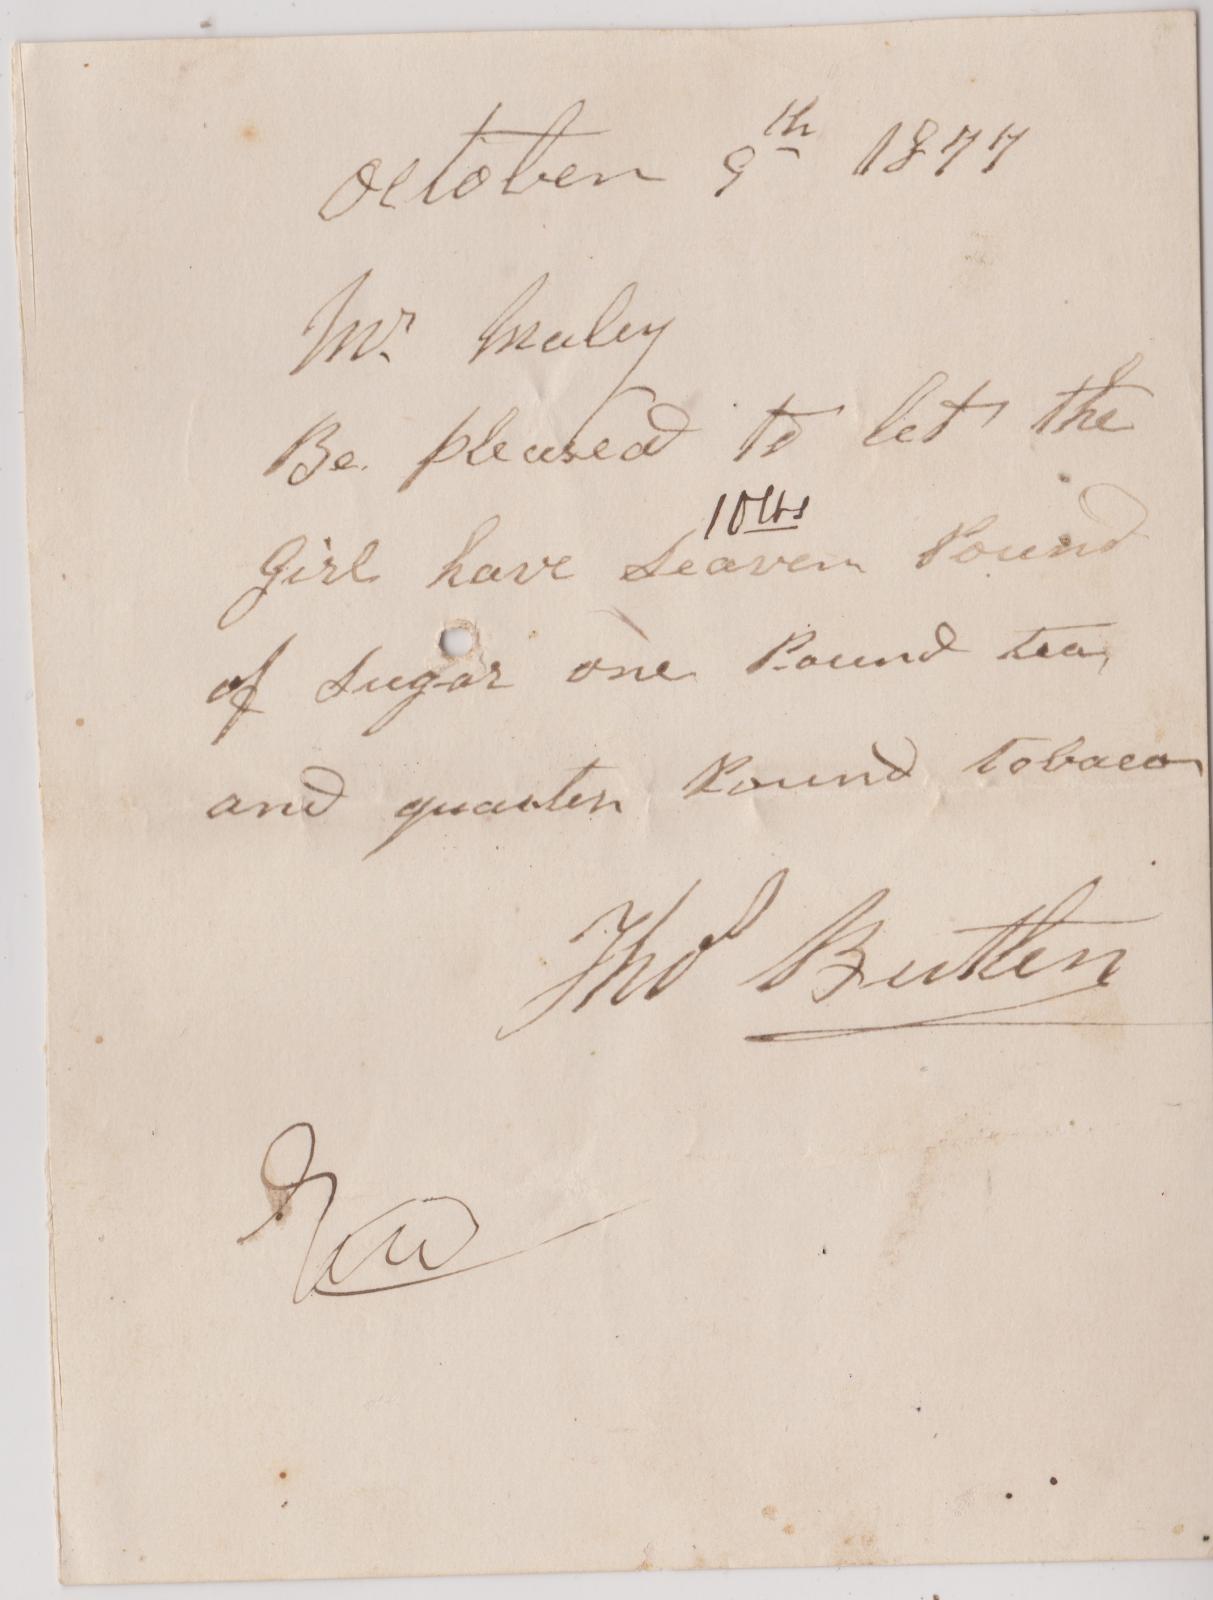 October 9th 1877
Mr. Maley
Be pleased to let the
10 lbs
Girl have seaven Pound
of sugar one Pound tea
and quarter Pound tobaco
Thos Butler